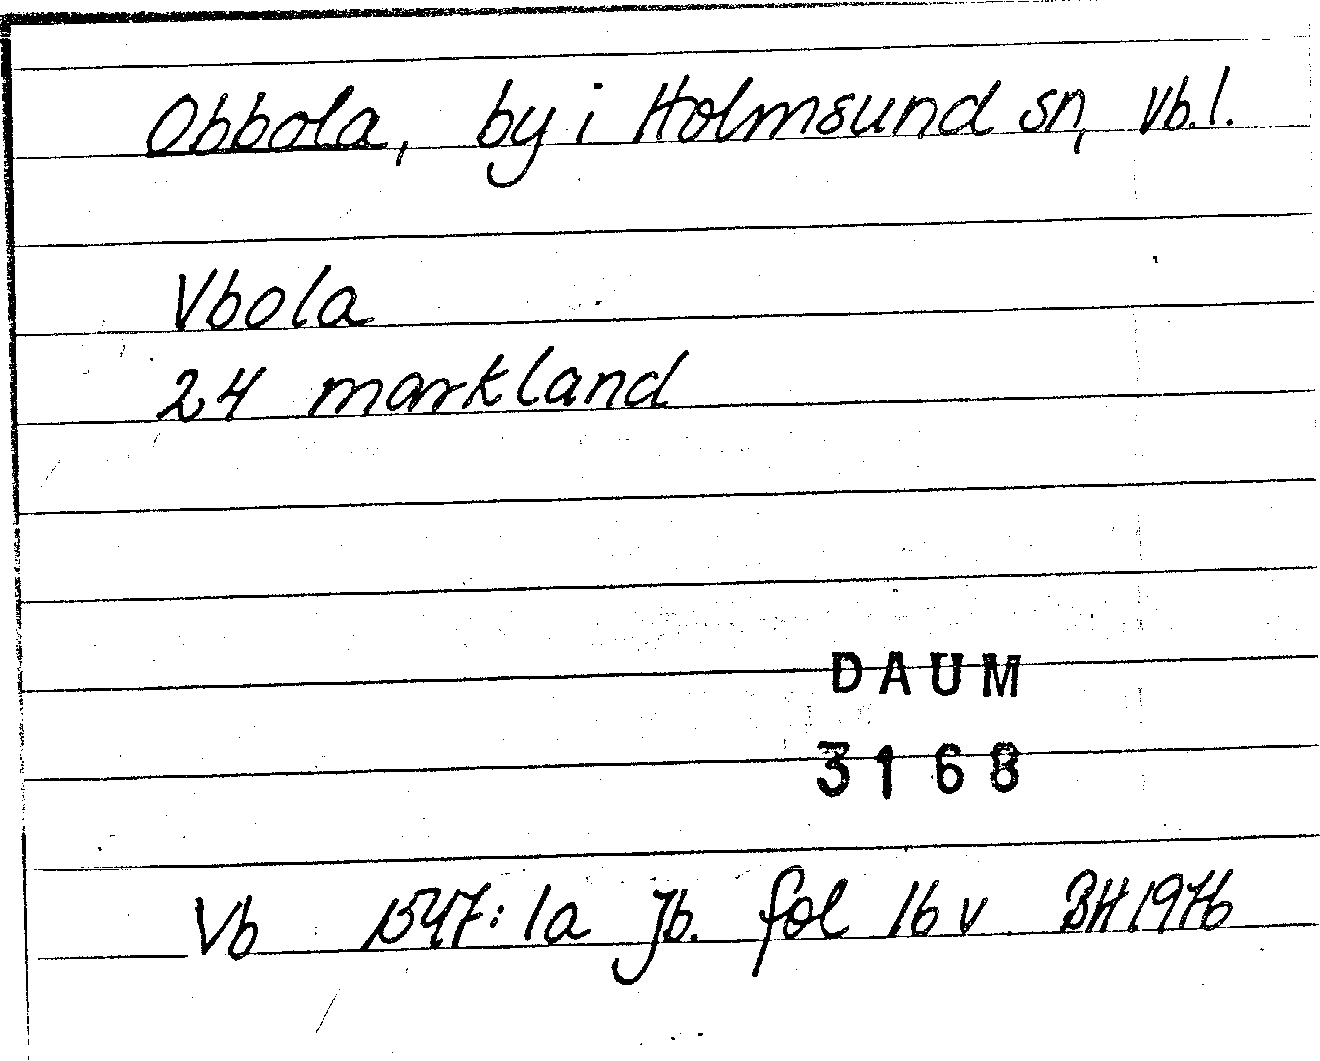 Obbola, by i Holmsund sn, Vb.l.
Vbola
24 markland
DAUM
3168
Vb 1547:1a Jb. fol 16 v BH 1976